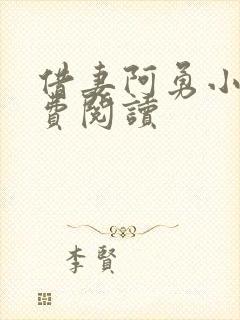 借妻阿勇小
費閱讀
李賢